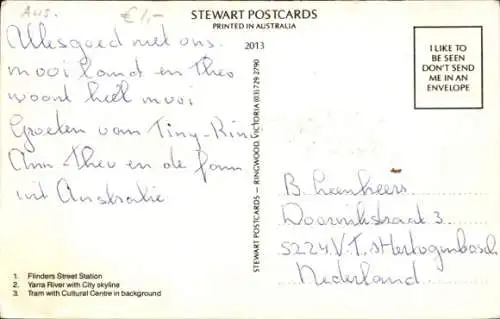 Aus.
€1,-
STEWART POSTCARDS
PRINTED IN AUSTRALIA
2013
I LIKE TO
BE SEEN
DON'T SEND
ME IN AN
ENVELOPE
Allesgoed met ons.
mooi land en Theo
woont heel mooi
Groeten van Tiny-Rino
Ann Theo en de fam
uit Australie
STEWART POSTCARDS — RINGWOOD, VICTORIA (03) 729 2790
B. Leenheers
Doornikstraat 3
5224.V.T. sHertogenbosch
Nederland
1. Flinders Street Station
2. Yarra River with City skyline
3. Tram with Cultural Centre in background